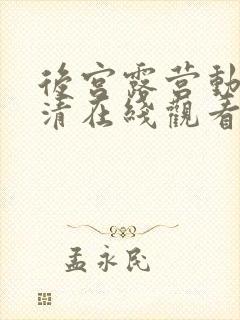 後宮露营動
清在綫觀看
孟永民